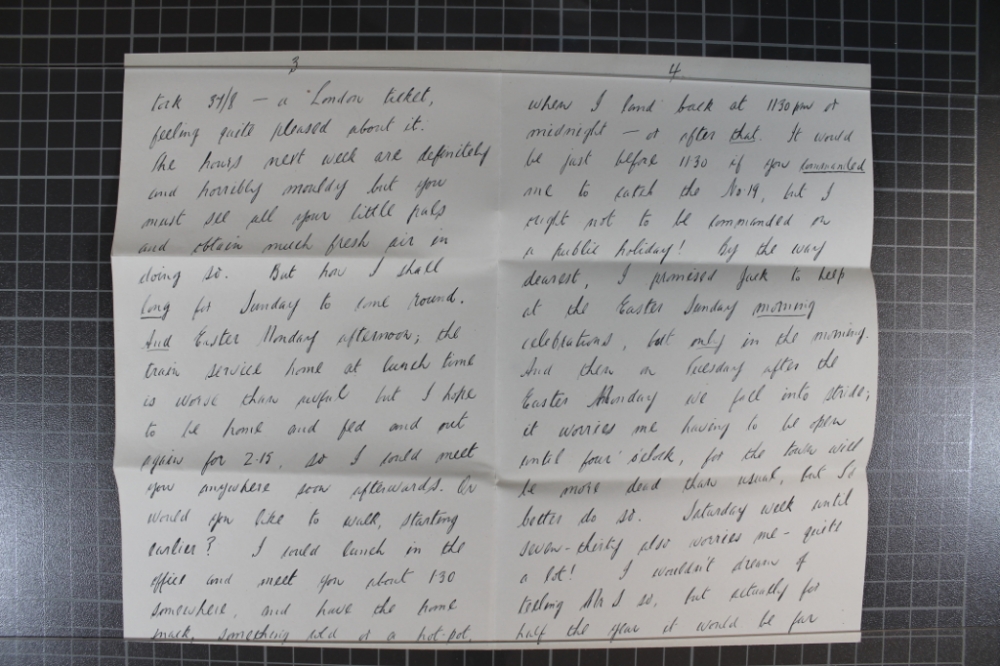 3
took 37/8 — a London ticket,
feeling quite pleased about it.
The hours next week are definitely
and horribly mouldy but you
must see all your little pals
and obtain much fresh air in
doing so. But how I shall
long for Sunday to come round.
And Easter Monday afternoon; the
train service home at lunch time
is worse than awful but I hope
to be home and fed and out
again for 2-15, so I could meet
you anywhere soon afterwards. Or
would you like to walk, starting
earlier? I could lunch in the
office and meet you about 1-30
somewhere, and have the home
snack, something cold or a hot-pot,
4
when I land back at 11.30pm or
midnight — or after that. It would
be just before 11.30 if you commanded
me to catch the No.19, but I
ought not to be commanded on
a public holiday! By the way
dearest, I promised Jack to help
at the Easter Sunday morning
celebrations, but only in the morning.
And then on Tuesday after the
Easter Monday we fall into stride;
it worries me having to be open
until four o'clock, for the town will
be more dead than usual, but I'd
better do so. Saturday week until
seven-thirty also worries me - quite
a lot! I wouldn't dream of
telling Mr S so, but actually for
half the year it would be far